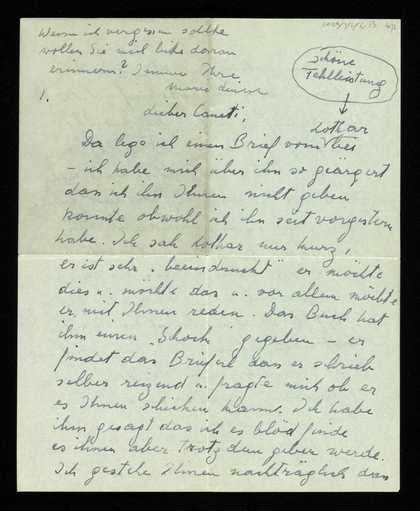 Wenn ich vergessen sollte
wollen Sie mich bitte daran
erinnern? Immer Ihre
Marie Louise
schöne
Fehlleistung
1.
dieber Canetti,
Lothar
Da lege ich einen Brief vom bei
– ich habe mich über ihn so geärgert
dass ich ihn Ihnen nicht geben
konnte obwohl ich ihn seit vorgestern
habe. Ich sah Lothar nur kurz,
er ist sehr "beeindruckt" er möchte
dies u. möchte das u. vor allem möchte
er mit Ihnen reden. Das Buch hat
ihm einen "Shock" gegeben – er
findet das Brieferl das er schrieb
selber reizend u. fragte mich ob er
es Ihnen schicken kann. Ich habe
ihm gesagt das ich es blöd finde
es ihnen aber trotzdem geben werde.
Ich gestehe Ihnen nachträglich dass